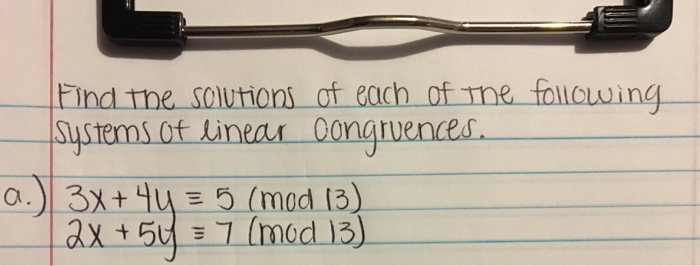 Find the solutions of each of the following
systems of linear congruences.
a.) 3x + 4y ≡ 5 (mod 13)
2x + 5y ≡ 7 (mod 13)